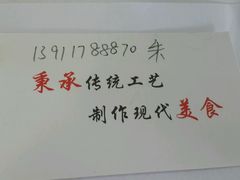 13911788870 朱
秉承传统工艺
制作现代美食